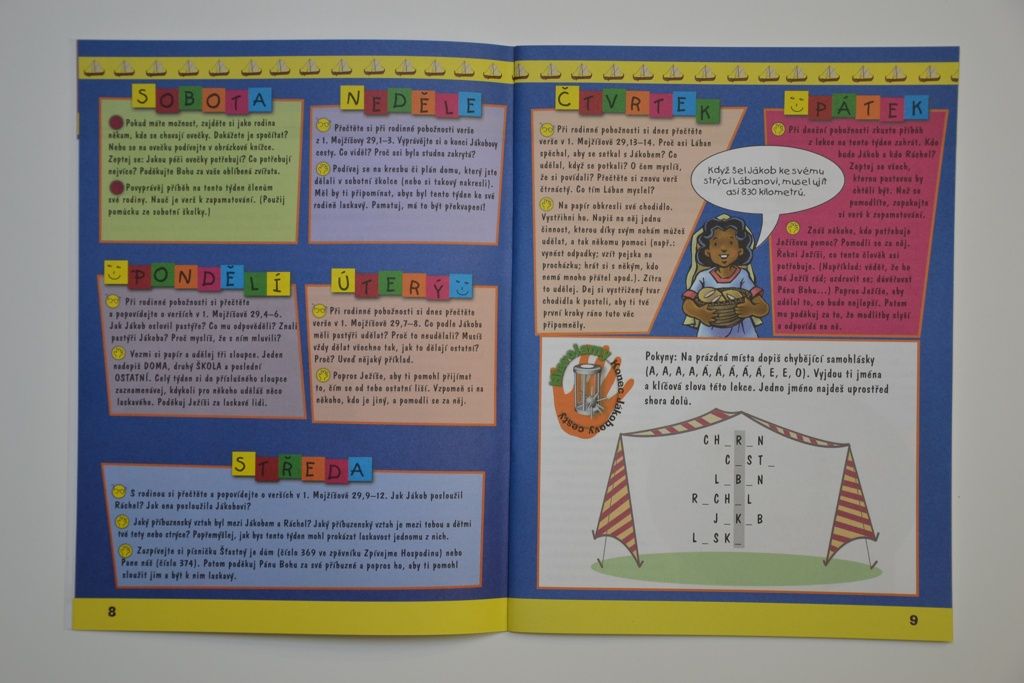 SOBOTA
Pokud máte možnost, zajděte si jako rodina
někam, kde se chovají ovečky. Dokážete je spočítat?
Nebo se na ovečku podívejte v obrázkové knížce.
Zeptej se: Jakou péči ovečky potřebují? Co potřebují
nejvíce? Poděkujte Bohu za vaše oblíbená zvířata.
Povyprávěj příběh na tento týden členům
své rodiny. Nauč je verš k zapamatování. (Použij
pomůcku ze sobotní školky.)
NEDĚLE
Přečtěte si při rodinné pobožnosti verše
z 1. Mojžíšovy 29,1–3. Vyprávějte si o konci Jákobovy
cesty. Co viděl? Proč asi byla studna zakrytá?
Podívej se na kresbu či plán domu, který jste
dělali v sobotní školce (nebo si takový nakresli).
Měl by ti připomínat, abys byl tento týden ke své
rodině laskavý. Pamatuj, má to být překvapení!
PONDĚLÍ
Při rodinné pobožnosti si přečtěte
a popovídejte o verších v 1. Mojžíšově 29,4–6.
Jak Jákob oslovil pastýře? Co mu odpověděli? Znali
pastýři Jákoba? Proč myslíš, že s ním mluvili?
Vezmi si papír a udělej tři sloupce. Jeden
nadepiš DOMA, druhý ŠKOLA a poslední
OSTATNÍ. Celý týden si do příslušného sloupce
zaznamenávej, kdykoli pro někoho uděláš něco
laskavého. Poděkuj Ježíši za laskavé lidi.
ÚTERÝ
Při rodinné pobožnosti si dnes přečtěte
verše v 1. Mojžíšově 29,7–8. Co podle Jákoba
měli pastýři udělat? Proč to neudělali? Musíš
vždy dělat všechno tak, jak to dělají ostatní?
Proč? Uveď nějaký příklad.
Popros Ježíše, aby ti pomohl přijímat
to, čím se od tebe ostatní liší. Vzpomeň si na
někoho, kdo je jiný, a pomodli se za něj.
STŘEDA
S rodinou si přečtěte a popovídejte o verších v 1. Mojžíšově 29,9–12. Jak Jákob posloužil
Ráchel? Jak ona posloužila Jákobovi?
Jaký příbuzenský vztah byl mezi Jákobem a Ráchel? Jaký příbuzenský vztah je mezi tebou a dětmi
tvé tety nebo strýce? Popřemýšlej, jak bys tento týden mohl prokázat laskavost jednomu z nich.
Zazpívejte si písničku Šťastný je dům (číslo 369 ve zpěvníku Zpívejme Hospodinu) nebo
Pane náš (číslo 374). Potom poděkuj Pánu Bohu za své příbuzné a popros ho, aby ti pomohl
sloužit jim a být k nim laskavý.
8
ČTVRTEK
Při rodinné pobožnosti si dnes přečtěte
verše v 1. Mojžíšově 29,13–14. Proč asi Lában
spěchal, aby se setkal s Jákobem? Co
udělal, když se potkali? O čem myslíš,
že si povídali? Přečtěte si znovu verš
čtrnáctý. Co tím Lában myslel?
Na papír obkresli své chodidlo.
Vystřihni ho. Napiš na něj jednu
činnost, kterou díky svým nohám můžeš
udělat, a tak někomu pomoci (např.:
vynést odpadky; vzít pejska na
procházku; hrát si s někým, kdo
nemá mnoho přátel apod.). Zítra
to udělej. Dej si vystřižený tvar
chodidla k posteli, aby ti tvé
první kroky ráno tuto věc
připomněly.
PÁTEK
Při dnešní pobožnosti zkuste příběh
z lekce na tento týden zahrát. Kdo
bude Jákob a kdo Ráchel?
Zeptej se všech,
kterou postavou by
chtěli být. Než se
pomodlíte, zopakujte
si verš k zapamatování.
Znáš někoho, kdo potřebuje
Ježíšovu pomoc? Pomodli se za něj.
Řekni Ježíši, co tento člověk asi
potřebuje. (Například: vědět, že ho
má Ježíš rád; uzdravit se; důvěřovat
Pánu Bohu...) Popros Ježíše, aby
udělal to, co bude nejlepší. Potom
mu poděkuj za to, že modlitby slyší
a odpovídá na ně.
Když šel Jákob ke svému
strýci Lábanovi, musel ujít
asi 830 kilometrů.
Hlavolamy
Konec Jákobovy cesty
Pokyny: Na prázdná místa dopiš chybějící samohlásky
(A, A, A, A, Á, Á, Á, Á, E, E, O). Vyjdou ti jména
a klíčová slova této lekce. Jedno jméno najdeš uprostřed
shora dolů.
CH _ R _ N
C _ ST _
L _ B _ N
R _ CH _ L
J _ K _ B
L _ SK _
9